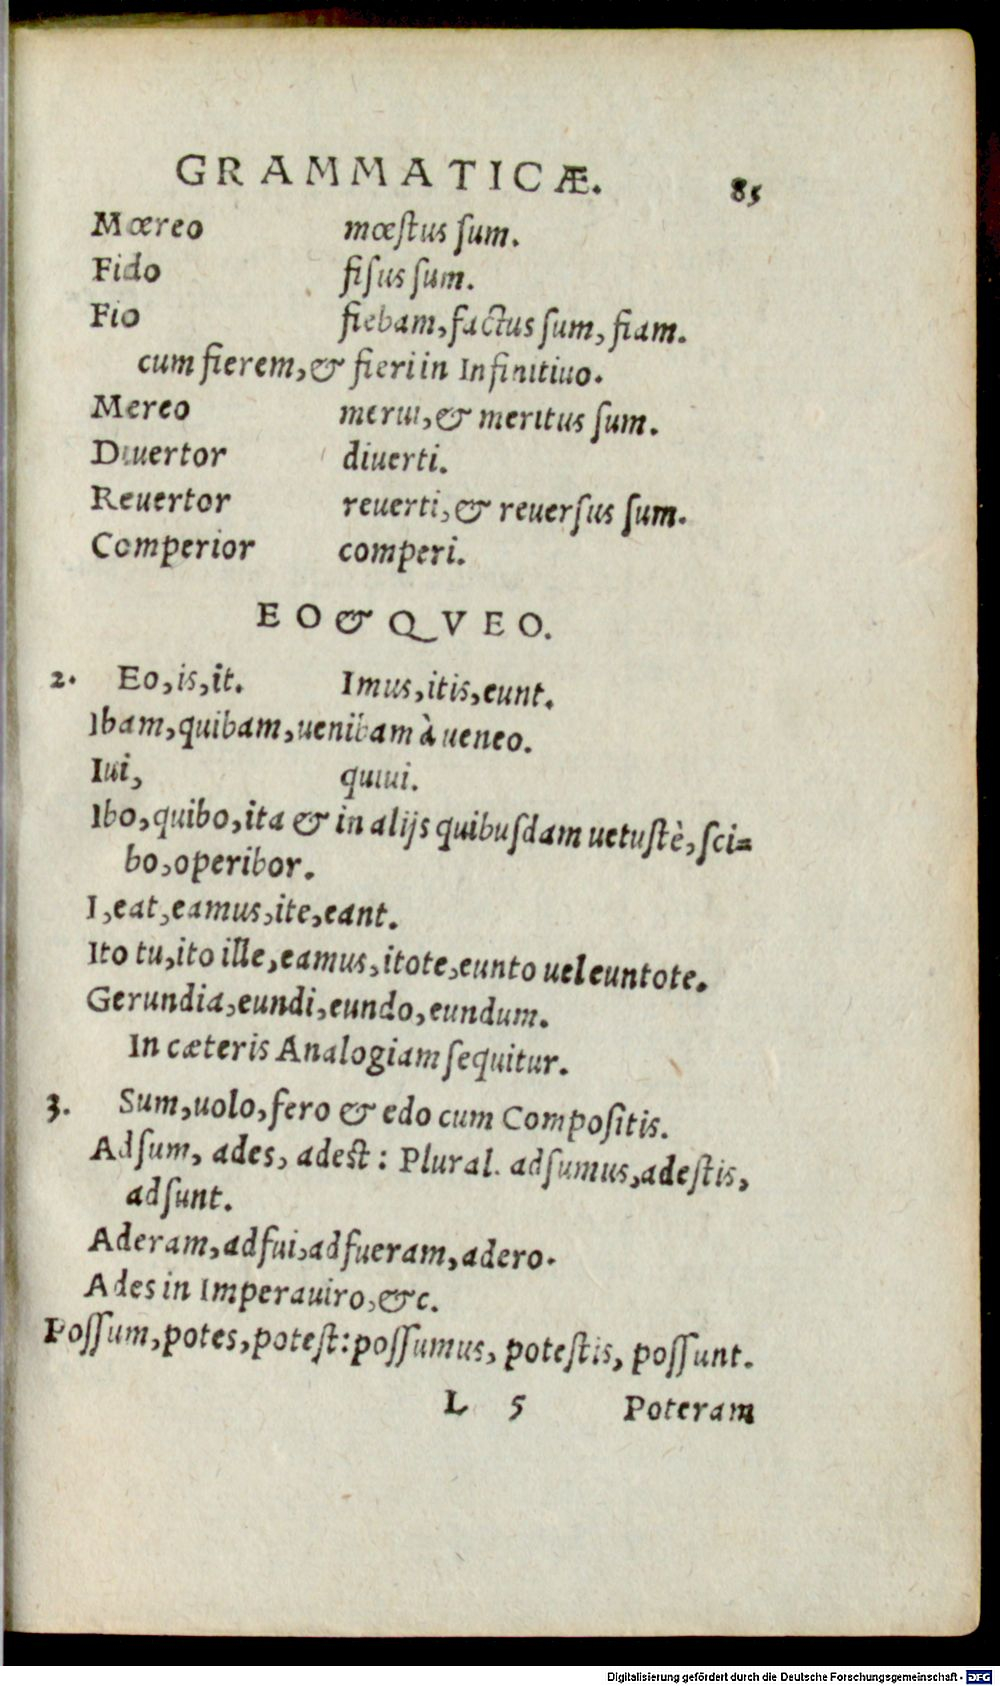 GRAMMATICÆ. 85
Mœreo mœſtus ſum.
Fido fiſus ſum.
Fio fiebam, factus ſum, fiam.
cum fierem, & fieri in Infinitiuo.
Mereo merui, & meritus ſum.
Diuertor diuerti.
Reuertor reuerti, & reuerſus ſum.
Comperior comperi.
EO & QVEO.
2. Eo, is, it. Imus, itis, eunt.
Ibam, quibam, uenibam à ueneo.
Iui, quiui.
Ibo, quibo, ita & in alijs quibuſdam uetuſtè, ſci=
bo, operibor.
I, eat, eamus, ite, eant.
Ito tu, ito ille, eamus, itote, eunto uel euntote.
Gerundia, eundi, eundo, eundum.
In cæteris Analogiam ſequitur.
3. Sum, uolo, fero & edo cum Compoſitis.
Adſum, ades, adest: Plural. adſumus, adeſtis,
adſunt.
Aderam, adfui, adfueram, adero.
Ades in Imperauiro, &c.
Poſſum, potes, poteſt: poſſumus, poteſtis, poſſunt.
L 5 Poteram
Digitalisierung gefördert durch die Deutsche Forschungsgemeinschaft - DFG